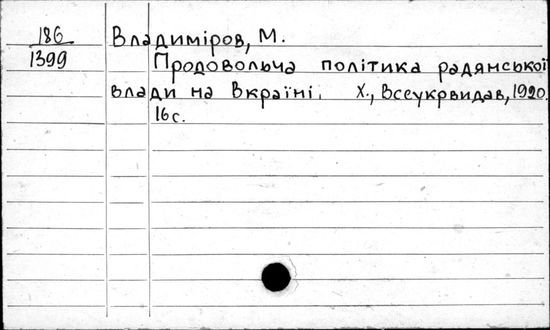 186 Владиміров, М.
1399 Продовольча політика радянської
влади на Вкраїні. Х., Всеукрвидав, 1920.
16с.